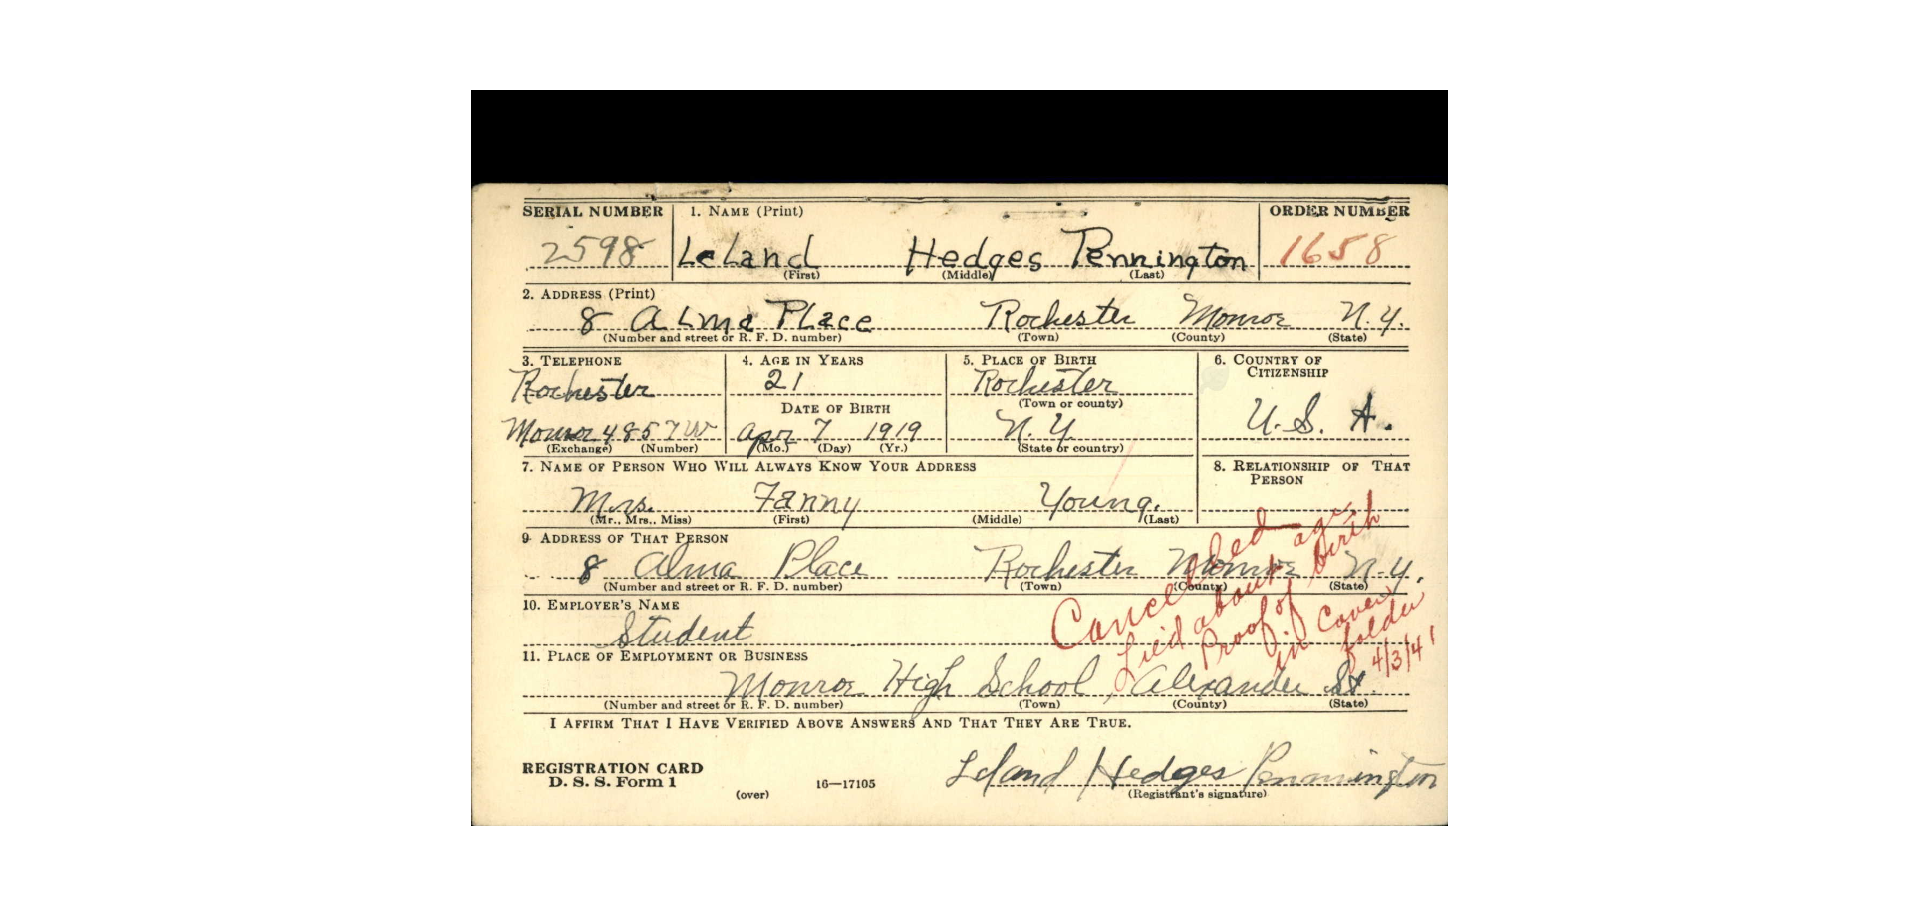 SERIAL NUMBER 1. NAME (Print) ORDER NUMBER
2598 Leland Hedges Pennington 1658
(First) (Middle) (Last)
2. ADDRESS (Print)
8 Alma Place Rochester Monroe N.Y.
(Number and street or R. F. D. number) (Town) (County) (State)
3. TELEPHONE 4. AGE IN YEARS 5. PLACE OF BIRTH 6. COUNTRY OF CITIZENSHIP
Rochester 21 Rochester
DATE OF BIRTH (Town or county) U.S.A.
Monroe 4857W Apr 7 1919 N.Y.
(Exchange) (Number) (Mo.) (Day) (Yr.) (State or country)
7. NAME OF PERSON WHO WILL ALWAYS KNOW YOUR ADDRESS 8. RELATIONSHIP OF THAT PERSON
Mrs. Fanny Young.
(Mr., Mrs., Miss) (First) (Middle) (Last)
9. ADDRESS OF THAT PERSON
8 Alma Place Rochester Monroe N.Y.
(Number and street or R. F. D. number) (Town) (County) (State)
Cancelled
Lied about age
Proof of birth
in Cover
folder
4/3/41
10. EMPLOYER'S NAME
Student
11. PLACE OF EMPLOYMENT OR BUSINESS
Monroe High School, Alexander St.
(Number and street or R. F. D. number) (Town) (County) (State)
I AFFIRM THAT I HAVE VERIFIED ABOVE ANSWERS AND THAT THEY ARE TRUE.
Leland Hedges Pennington
REGISTRATION CARD
D. S. S. Form 1 16—17105 (Registrant's signature)
(over)